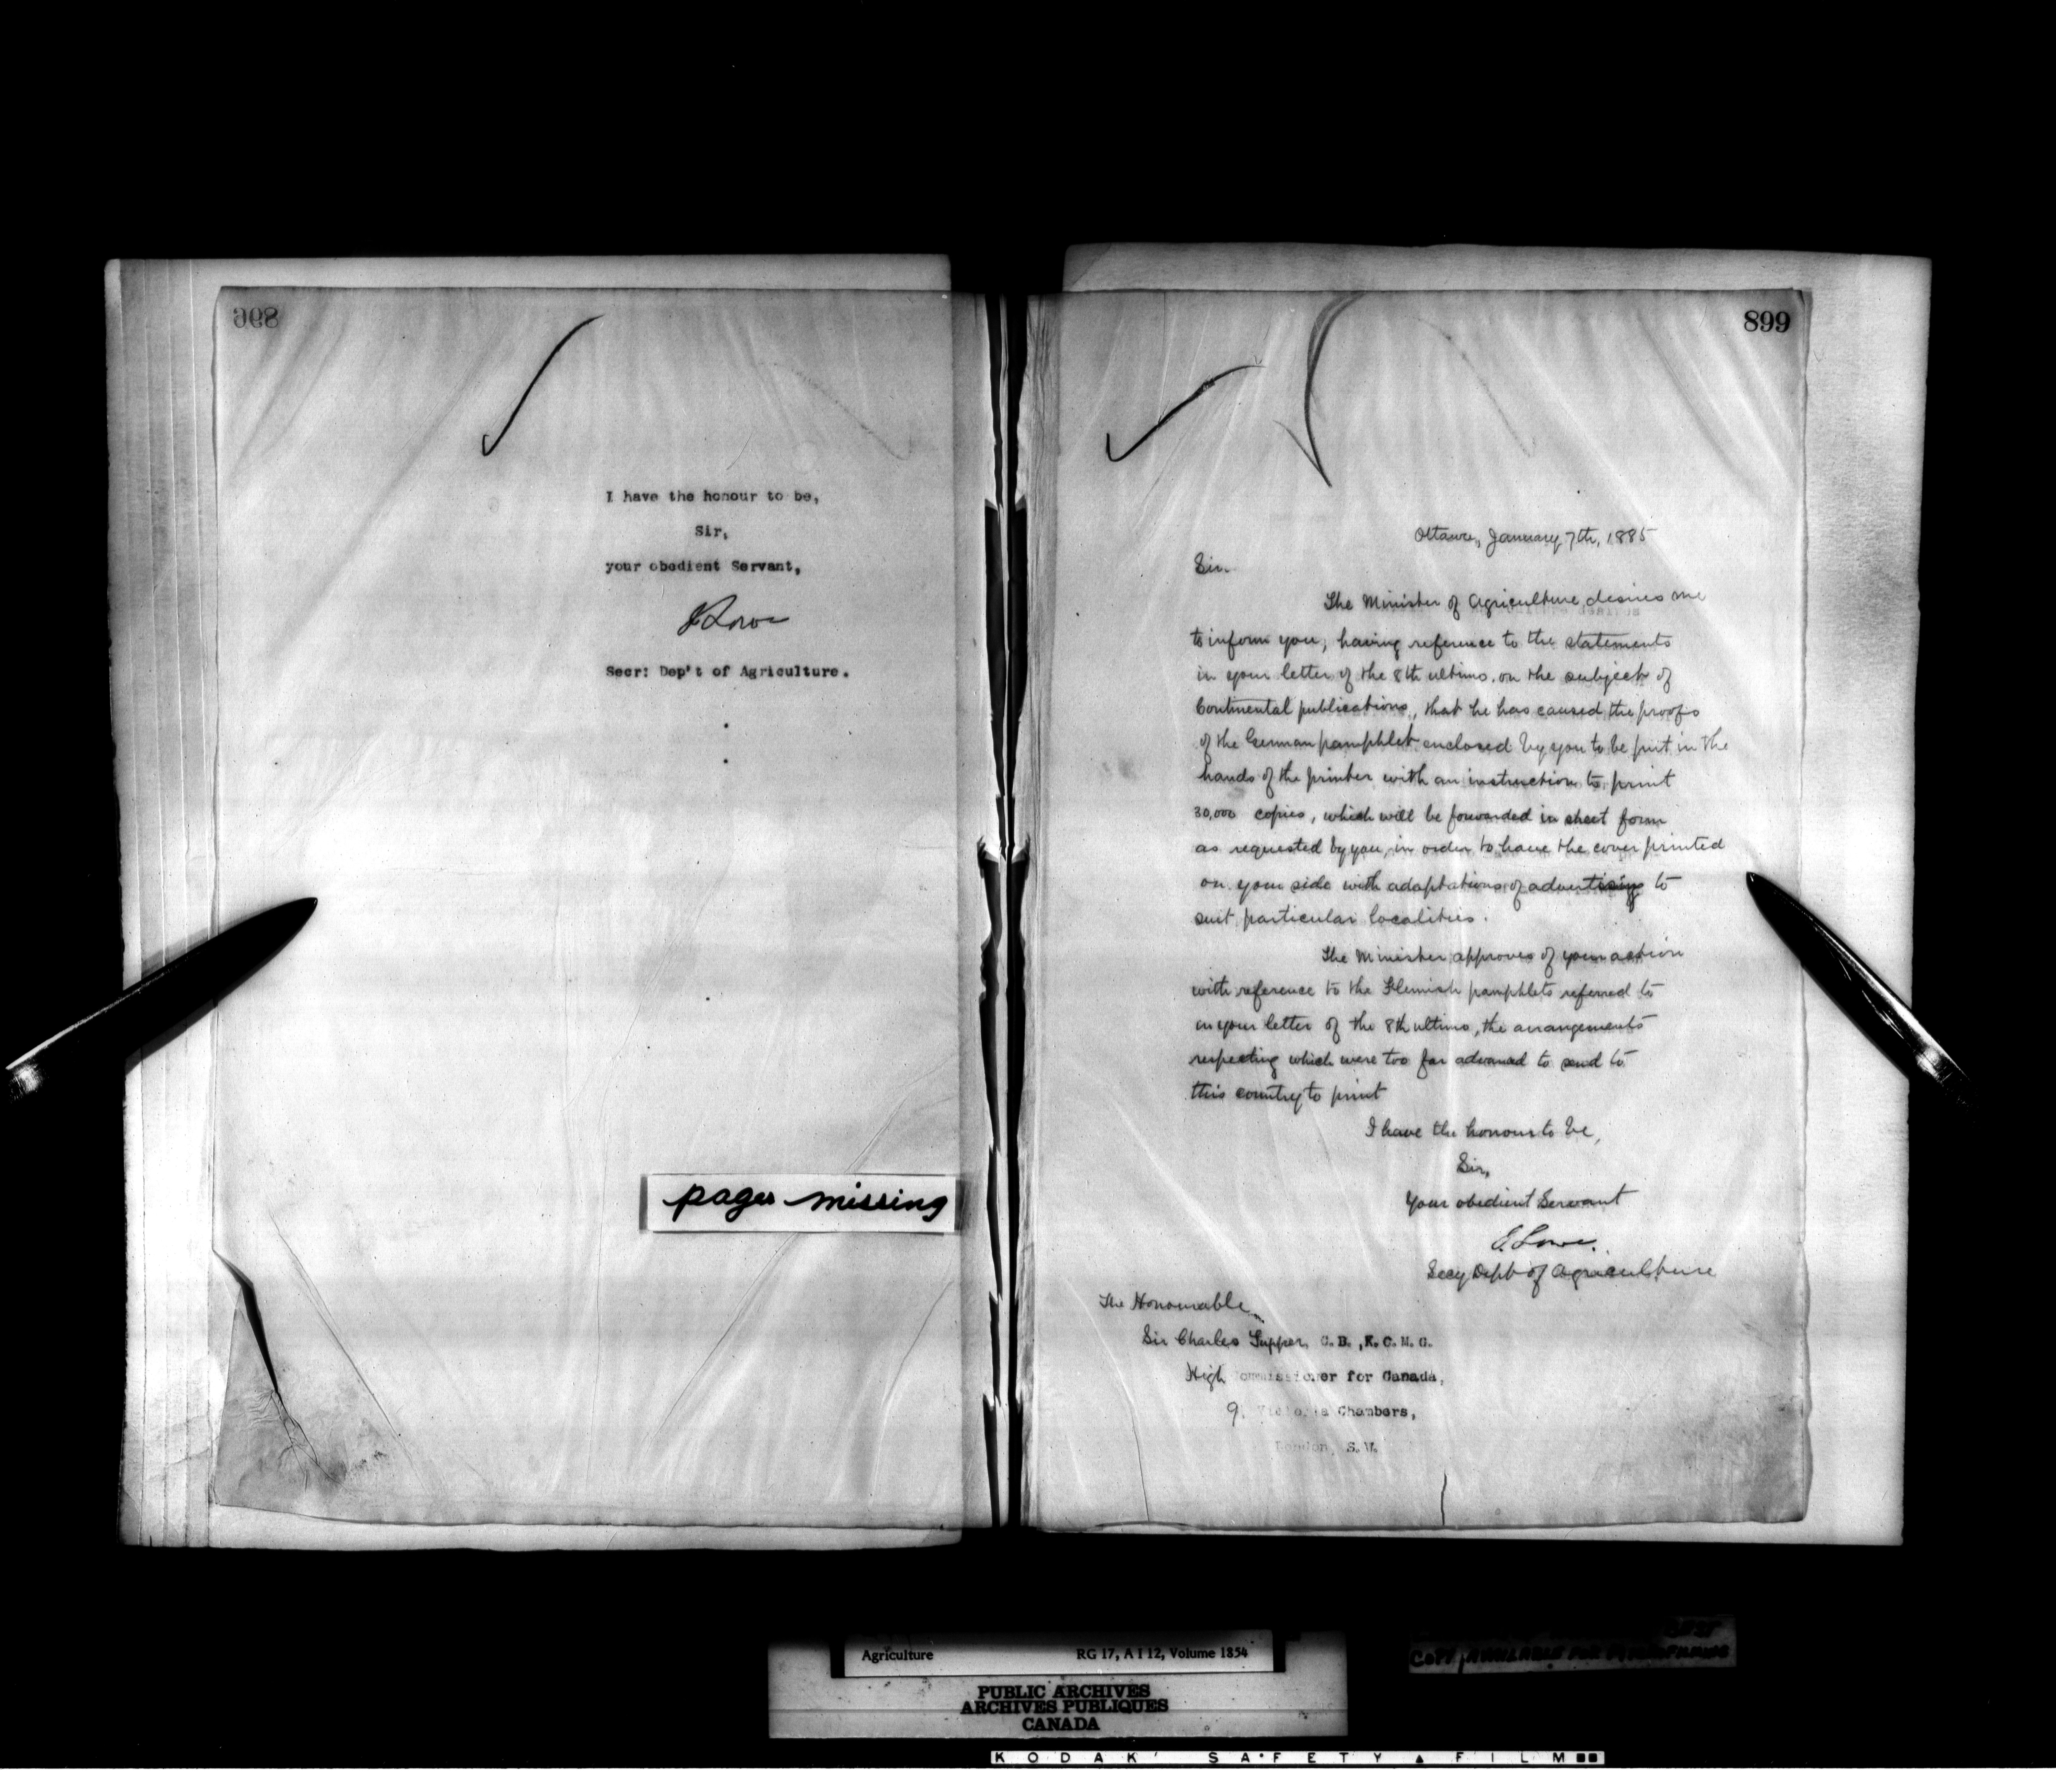 896
I have the honour to be,
Sir,
your obedient Servant,
J Lowe
Secr: Dep't of Agriculture.
pages missing
899
Ottawa, January 7th, 1885
Sir.
The Minister of Agriculture desires me
to inform you, having reference to the statements
in your letter of the 8th ultimo, on the subject of
Continental publications, that he has caused the proofs
of the German pamphlet enclosed by you to be put in the
hands of the printer with an instruction to print
30,000 copies, which will be forwarded in sheet form
as requested by you, in order to have the cover printed
on your side with adaptations of advertising to
suit particular localities.
The Minister approves of your action
with reference to the Flemish pamphlets referred to
in your letter of the 8th ultimo, the arrangements
respecting which were too far advanced to send to
this country to print
I have the honour to be,
Sir,
Your obedient Servant
J. Lowe.
Secy Dept of Agriculture
The Honourable
Sir Charles Tupper, C.B.,K.C.M.G.
High Commissioner for Canada,
9, Victoria Chambers,
London, S.W.
Agriculture RG 17, A I 12, Volume 1854
PUBLIC ARCHIVES
ARCHIVES PUBLIQUES
CANADA
BEST
COPY AVAILABLE FOR
KODAK SAFETY FILM